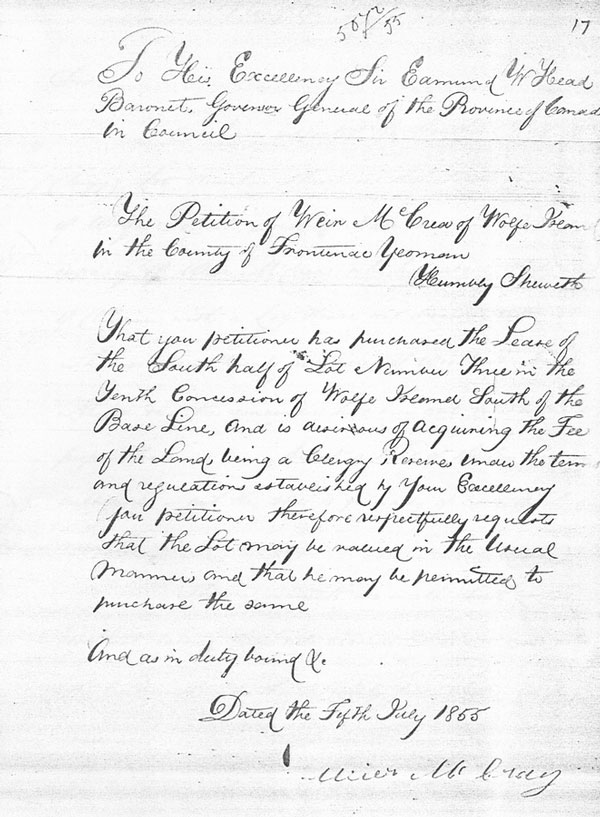 17
To His Excellency Sir Edmund W Head
Baronet, Governor General of the Province of Canad
in Council
The Petition of Weir McCrea of Wolfe Island
in the County of Frontenac Yeoman
Humbly Sheweth
That your petitioner has purchased the Lease of
the South half of Lot Number Three in the
Tenth Concession of Wolfe Island South of the
Base Line, and is desirous of acquiring the Fee
of the Land, being a Clergy Reserve under the term
and regulations established by Your Excellency
your petitioner therefore respectfully requests
that the Lot may be valued in the Usual
Manner and that he may be permitted to
purchase the same
And as in duty bound &c.
Dated the Fifth July 1855
Mc